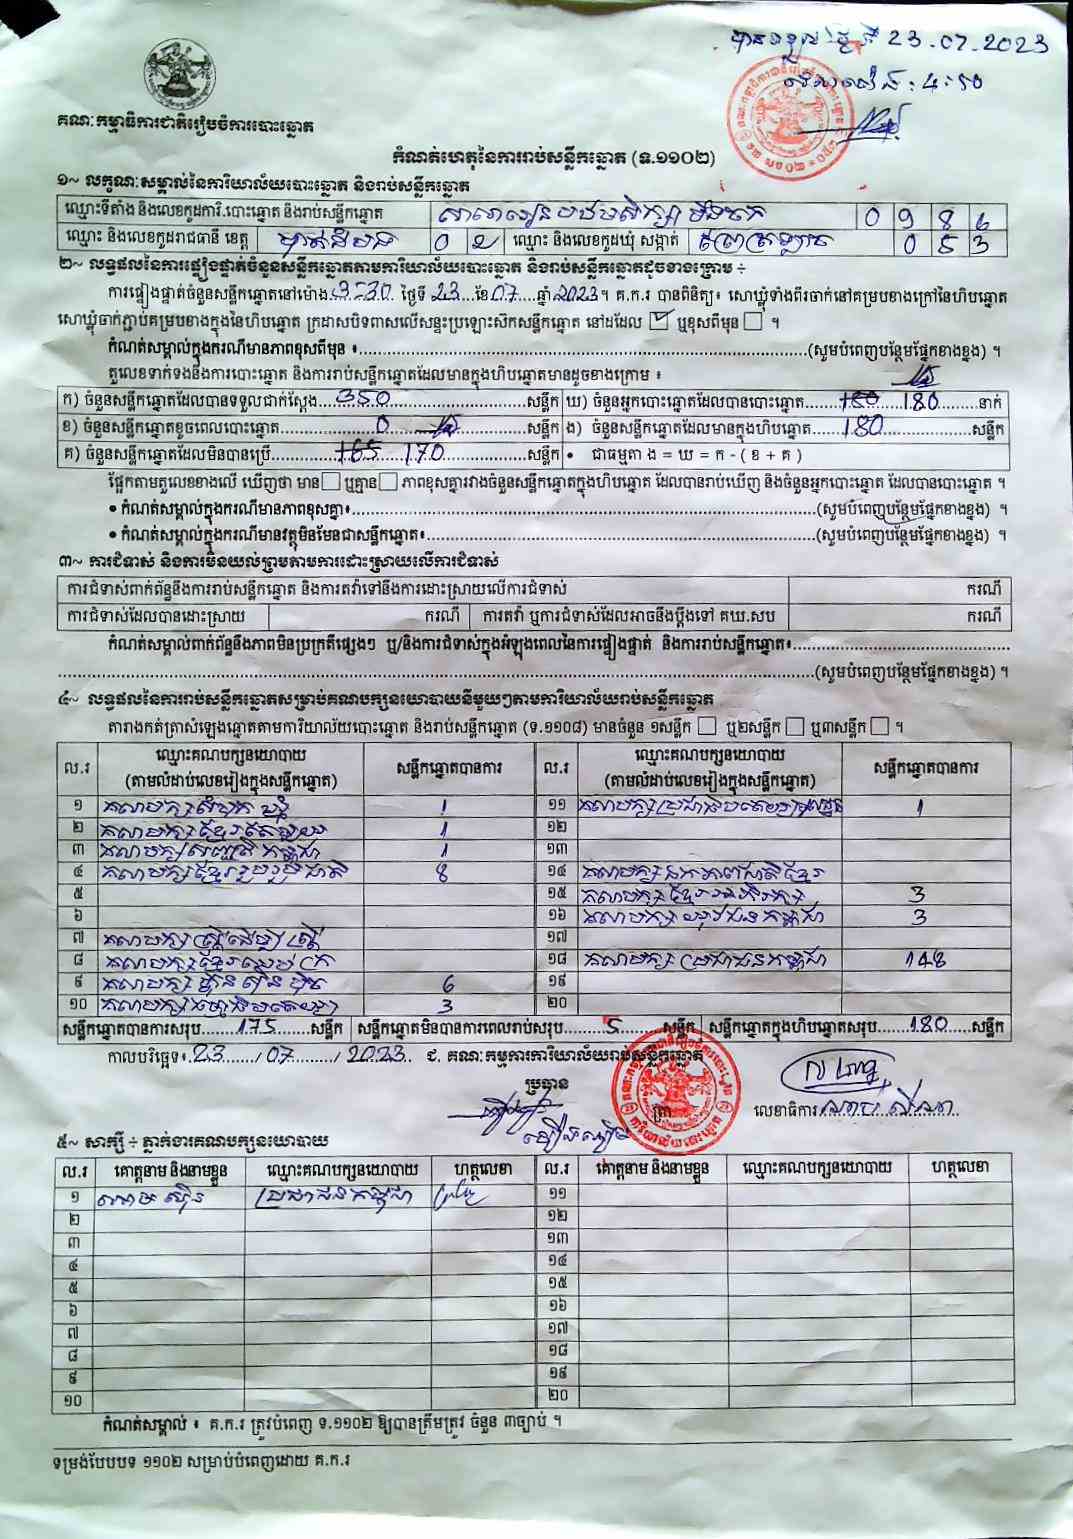 បានទទួល ថ្ងៃទី 23.07.2023
ម៉ោង : 4:50
គណៈកម្មាធិការជាតិរៀបចំការបោះឆ្នោត
កំណត់ហេតុនៃការរាប់សន្លឹកឆ្នោត (ទ.១១០២)
១~ លក្ខណៈសម្គាល់នៃការិយាល័យបោះឆ្នោត និងរាប់សន្លឹកឆ្នោត
ឈ្មោះទីតាំង និងលេខកូដការិ.បោះឆ្នោត និងរាប់សន្លឹកឆ្នោត សាលារៀនបឋមសិក្សា 0 9 8 6
ឈ្មោះ និងលេខកូដរាជធានី ខេត្ត បាត់ដំបង 0 2 ឈ្មោះ និងលេខកូដឃុំ សង្កាត់ 0 5 3
២~ លទ្ធផលនៃការផ្ទៀងផ្ទាត់ចំនួនសន្លឹកឆ្នោតតាមការិយាល័យបោះឆ្នោត និងរាប់សន្លឹកឆ្នោតដូចខាងក្រោម ÷
ការផ្ទៀងផ្ទាត់ចំនួនសន្លឹកឆ្នោតនៅម៉ោង 3-30 ថ្ងៃទី 23 ខែ 07 ឆ្នាំ 2023។ គ.ក.រ បានពិនិត្យ៖ សោឃ្លុំទាំងពីរចាក់នៅគម្របខាងក្រៅនៃហិបឆ្នោត
សោឃ្លុំចាក់ភ្ជាប់គម្របខាងក្នុងនៃហិបឆ្នោត ក្រដាសបិទពាសលើសន្ទះប្រឡោះសឹកសន្លឹកឆ្នោត នៅដដែល ☑ ឬខុសពីមុន ☐ ។
កំណត់សម្គាល់ក្នុងករណីមានភាពខុសពីមុន ៖..........(សូមបំពេញបន្ថែមផ្នែកខាងខ្នង) ។
តួលេខទាក់ទងនឹងការបោះឆ្នោត និងការរាប់សន្លឹកឆ្នោតដែលមានក្នុងហិបឆ្នោតមានដូចខាងក្រោម ៖
ក) ចំនួនសន្លឹកឆ្នោតដែលបានទទួលជាក់ស្តែង 350 សន្លឹក ឃ) ចំនួនអ្នកបោះឆ្នោតដែលបានបោះឆ្នោត 180 នាក់
ខ) ចំនួនសន្លឹកឆ្នោតខូចពេលបោះឆ្នោត 0 សន្លឹក ង) ចំនួនសន្លឹកឆ្នោតដែលមានក្នុងហិបឆ្នោត 180 សន្លឹក
គ) ចំនួនសន្លឹកឆ្នោតដែលមិនបានប្រើ 165 170 សន្លឹក • ជាធម្មតា ង = ឃ = ក - ( ខ + គ )
ផ្អែកតាមតួលេខខាងលើ ឃើញថា មាន ☐ ឬគ្មាន ☐ ភាពខុសគ្នារវាងចំនួនសន្លឹកឆ្នោតក្នុងហិបឆ្នោត ដែលបានរាប់ឃើញ និងចំនួនអ្នកបោះឆ្នោត ដែលបានបោះឆ្នោត ។
• កំណត់សម្គាល់ក្នុងករណីមានភាពខុសគ្នា៖..........(សូមបំពេញបន្ថែមផ្នែកខាងខ្នង) ។
• កំណត់សម្គាល់ក្នុងករណីមានវត្ថុមិនមែនជាសន្លឹកឆ្នោត៖..........(សូមបំពេញបន្ថែមផ្នែកខាងខ្នង) ។
៣~ ការជំទាស់ និងការមិនយល់ព្រមតាមការដោះស្រាយលើការជំទាស់
ការជំទាស់ពាក់ព័ន្ធនឹងការរាប់សន្លឹកឆ្នោត និងការតវ៉ាទៅនឹងការដោះស្រាយលើការជំទាស់ ករណី
ការជំទាស់ដែលបានដោះស្រាយ ករណី ការតវ៉ា ឬការជំទាស់ដែលអាចនឹងប្តឹងទៅ គឃ.សប ករណី
កំណត់សម្គាល់ពាក់ព័ន្ធនឹងភាពមិនប្រក្រតីផ្សេងៗ ឬ/និងការជំទាស់ក្នុងអំឡុងពេលនៃការផ្ទៀងផ្ទាត់ និងការរាប់សន្លឹកឆ្នោត៖..........
..........(សូមបំពេញបន្ថែមផ្នែកខាងខ្នង) ។
៤~ លទ្ធផលនៃការរាប់សន្លឹកឆ្នោតសម្រាប់គណបក្សនយោបាយនីមួយៗតាមការិយាល័យរាប់សន្លឹកឆ្នោត
តារាងកត់ត្រាសំឡេងឆ្នោតតាមការិយាល័យបោះឆ្នោត និងរាប់សន្លឹកឆ្នោត (ទ.១១០៨) មានចំនួន ១សន្លឹក ☐ ឬ២សន្លឹក ☐ ឬ៣សន្លឹក ☐ ។
ល.រ ឈ្មោះគណបក្សនយោបាយ សន្លឹកឆ្នោតបានការ ល.រ ឈ្មោះគណបក្សនយោបាយ សន្លឹកឆ្នោតបានការ
(តាមលំដាប់លេខរៀងក្នុងសន្លឹកឆ្នោត) (តាមលំដាប់លេខរៀងក្នុងសន្លឹកឆ្នោត)
១ គណបក្សសំបុកឃ្មុំ 1 ១១ គណបក្សប្រជាធិបតេយ្យមូលដ្ឋាន 1
២ គណបក្សខ្មែរតែមួយ 1 ១២
៣ គណបក្សសញ្ជាតិកម្ពុជា 1 ១៣
៤ គណបក្សខ្មែររួបរួមជាតិ 8 ១៤ គណបក្សឯកភាពជាតិខ្មែរ
៥ ១៥ គណបក្សខ្មែរអភិរក្ស 3
៦ ១៦ គណបក្សយុវជនកម្ពុជា 3
៧ គណបក្សស្ត្រីដើម្បីស្ត្រី ១៧
៨ គណបក្សខ្មែរឈប់ក្រ ១៨ គណបក្សប្រជាជនកម្ពុជា 148
៩ គណបក្សហ្វ៊ុនស៊ិនប៉ិច 6 ១៩
១០ គណបក្សធម្មាធិបតេយ្យ 3 ២០
សន្លឹកឆ្នោតបានការសរុប 175 សន្លឹក សន្លឹកឆ្នោតមិនបានការពេលរាប់សរុប 5 សន្លឹក សន្លឹកឆ្នោតក្នុងហិបឆ្នោតសរុប 180 សន្លឹក
កាលបរិច្ឆេទ៖ 23 / 07 / 2023. ជ. គណៈកម្មការការិយាល័យរាប់សន្លឹកឆ្នោត
ប្រធាន
ត្រា លេខាធិការ
៥~ សាក្សី ÷ ភ្នាក់ងារគណបក្សនយោបាយ
ល.រ គោត្តនាម និងនាមខ្លួន ឈ្មោះគណបក្សនយោបាយ ហត្ថលេខា ល.រ គោត្តនាម និងនាមខ្លួន ឈ្មោះគណបក្សនយោបាយ ហត្ថលេខា
១ ប្រជាជនកម្ពុជា ១១
២ ១២
៣ ១៣
៤ ១៤
៥ ១៥
៦ ១៦
៧ ១៧
៨ ១៨
៩ ១៩
១០ ២០
កំណត់សម្គាល់ ៖ គ.ក.រ ត្រូវបំពេញ ទ.១១០២ ឱ្យបានត្រឹមត្រូវ ចំនួន ៣ច្បាប់ ។
ទម្រង់បែបបទ ១១០២ សម្រាប់បំពេញដោយ គ.ក.រ